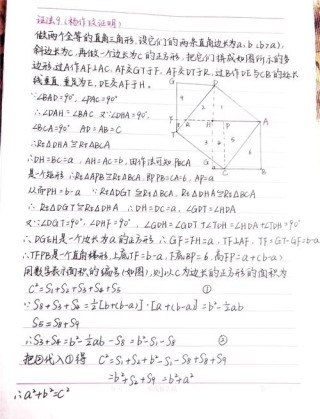 证法9(杨作玫证明)
做两个全等的直角三角形,设它们的两条直角边长为a,b(b>a),
斜边长为c.再做一个边长为c的正方形.把它们拼成如图所示的多
边形.过A作AF⊥AC,AF交GT于F,AF交DT于R.过B作BP⊥AF
垂足为E,DE交AF于H.
∵∠BAD=90°,∠PAC=90°
∴∠DAH=∠BAC 又∵∠DHA=90°,
∠BCA=90° AD=AB=C
∴Rt△DHA≌Rt△BCA
∴DH=BC=a,AH=AC=b.由作法可知,PBCA
是一个矩形,∴Rt△APB≌Rt△BCA.即PB=CA=b,AP=a
从而PH=b-a ∵Rt△DGT≌Rt△BCA,Rt△DHA≌Rt△BCA
∴Rt△DGT≌Rt△DHA ∴DH=DG=a,∠GDT=∠HDA
又∵∠DGT=90°,∠DHF=90°,∠GDH=∠GDT+∠TDH=∠HDA+∠TDH=90°
∴DGFH是一个边长为a的正方形.∴GF=FH=a,TF⊥AF,TF=GT-GF=b-a
∴TFPB是一个直角梯形,上底TF=b-a,下底BP=b,高FP=a+(b-a)
用数字表示面积的编号(如图),则以C为边长的正方形的面积为
C²=S₁+S₂+S₃+S₄+S₅ ①
∵S₈+S₃+S₄=½[b+(b-a)]·[a+(b-a)]=b²-½ab
S₅=S₈+S₉
∴S₃+S₄=b²-½ab-S₈=b²-S₁-S₈ ②
把②代入①得 C²=S₁+S₂+b²-S₁-S₈+S₈+S₉
=b²+S₂+S₉=b²+a²
∴a²+b²=c²